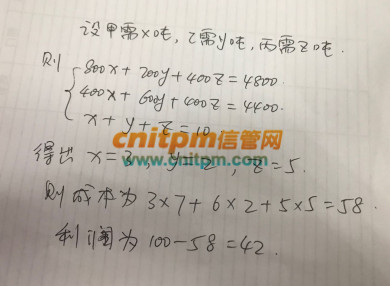 设甲需x吨，乙需y吨，丙需z吨.
则
800x+200y+400z=4800.
400x+600y+400z=4400.
x+y+z=10
cnitpm信管网
www.cnitpm.com
得出 x=3, y=2, z=5.
则成本为 3×7+6×2+5×5=58.
利润为 100-58=42.